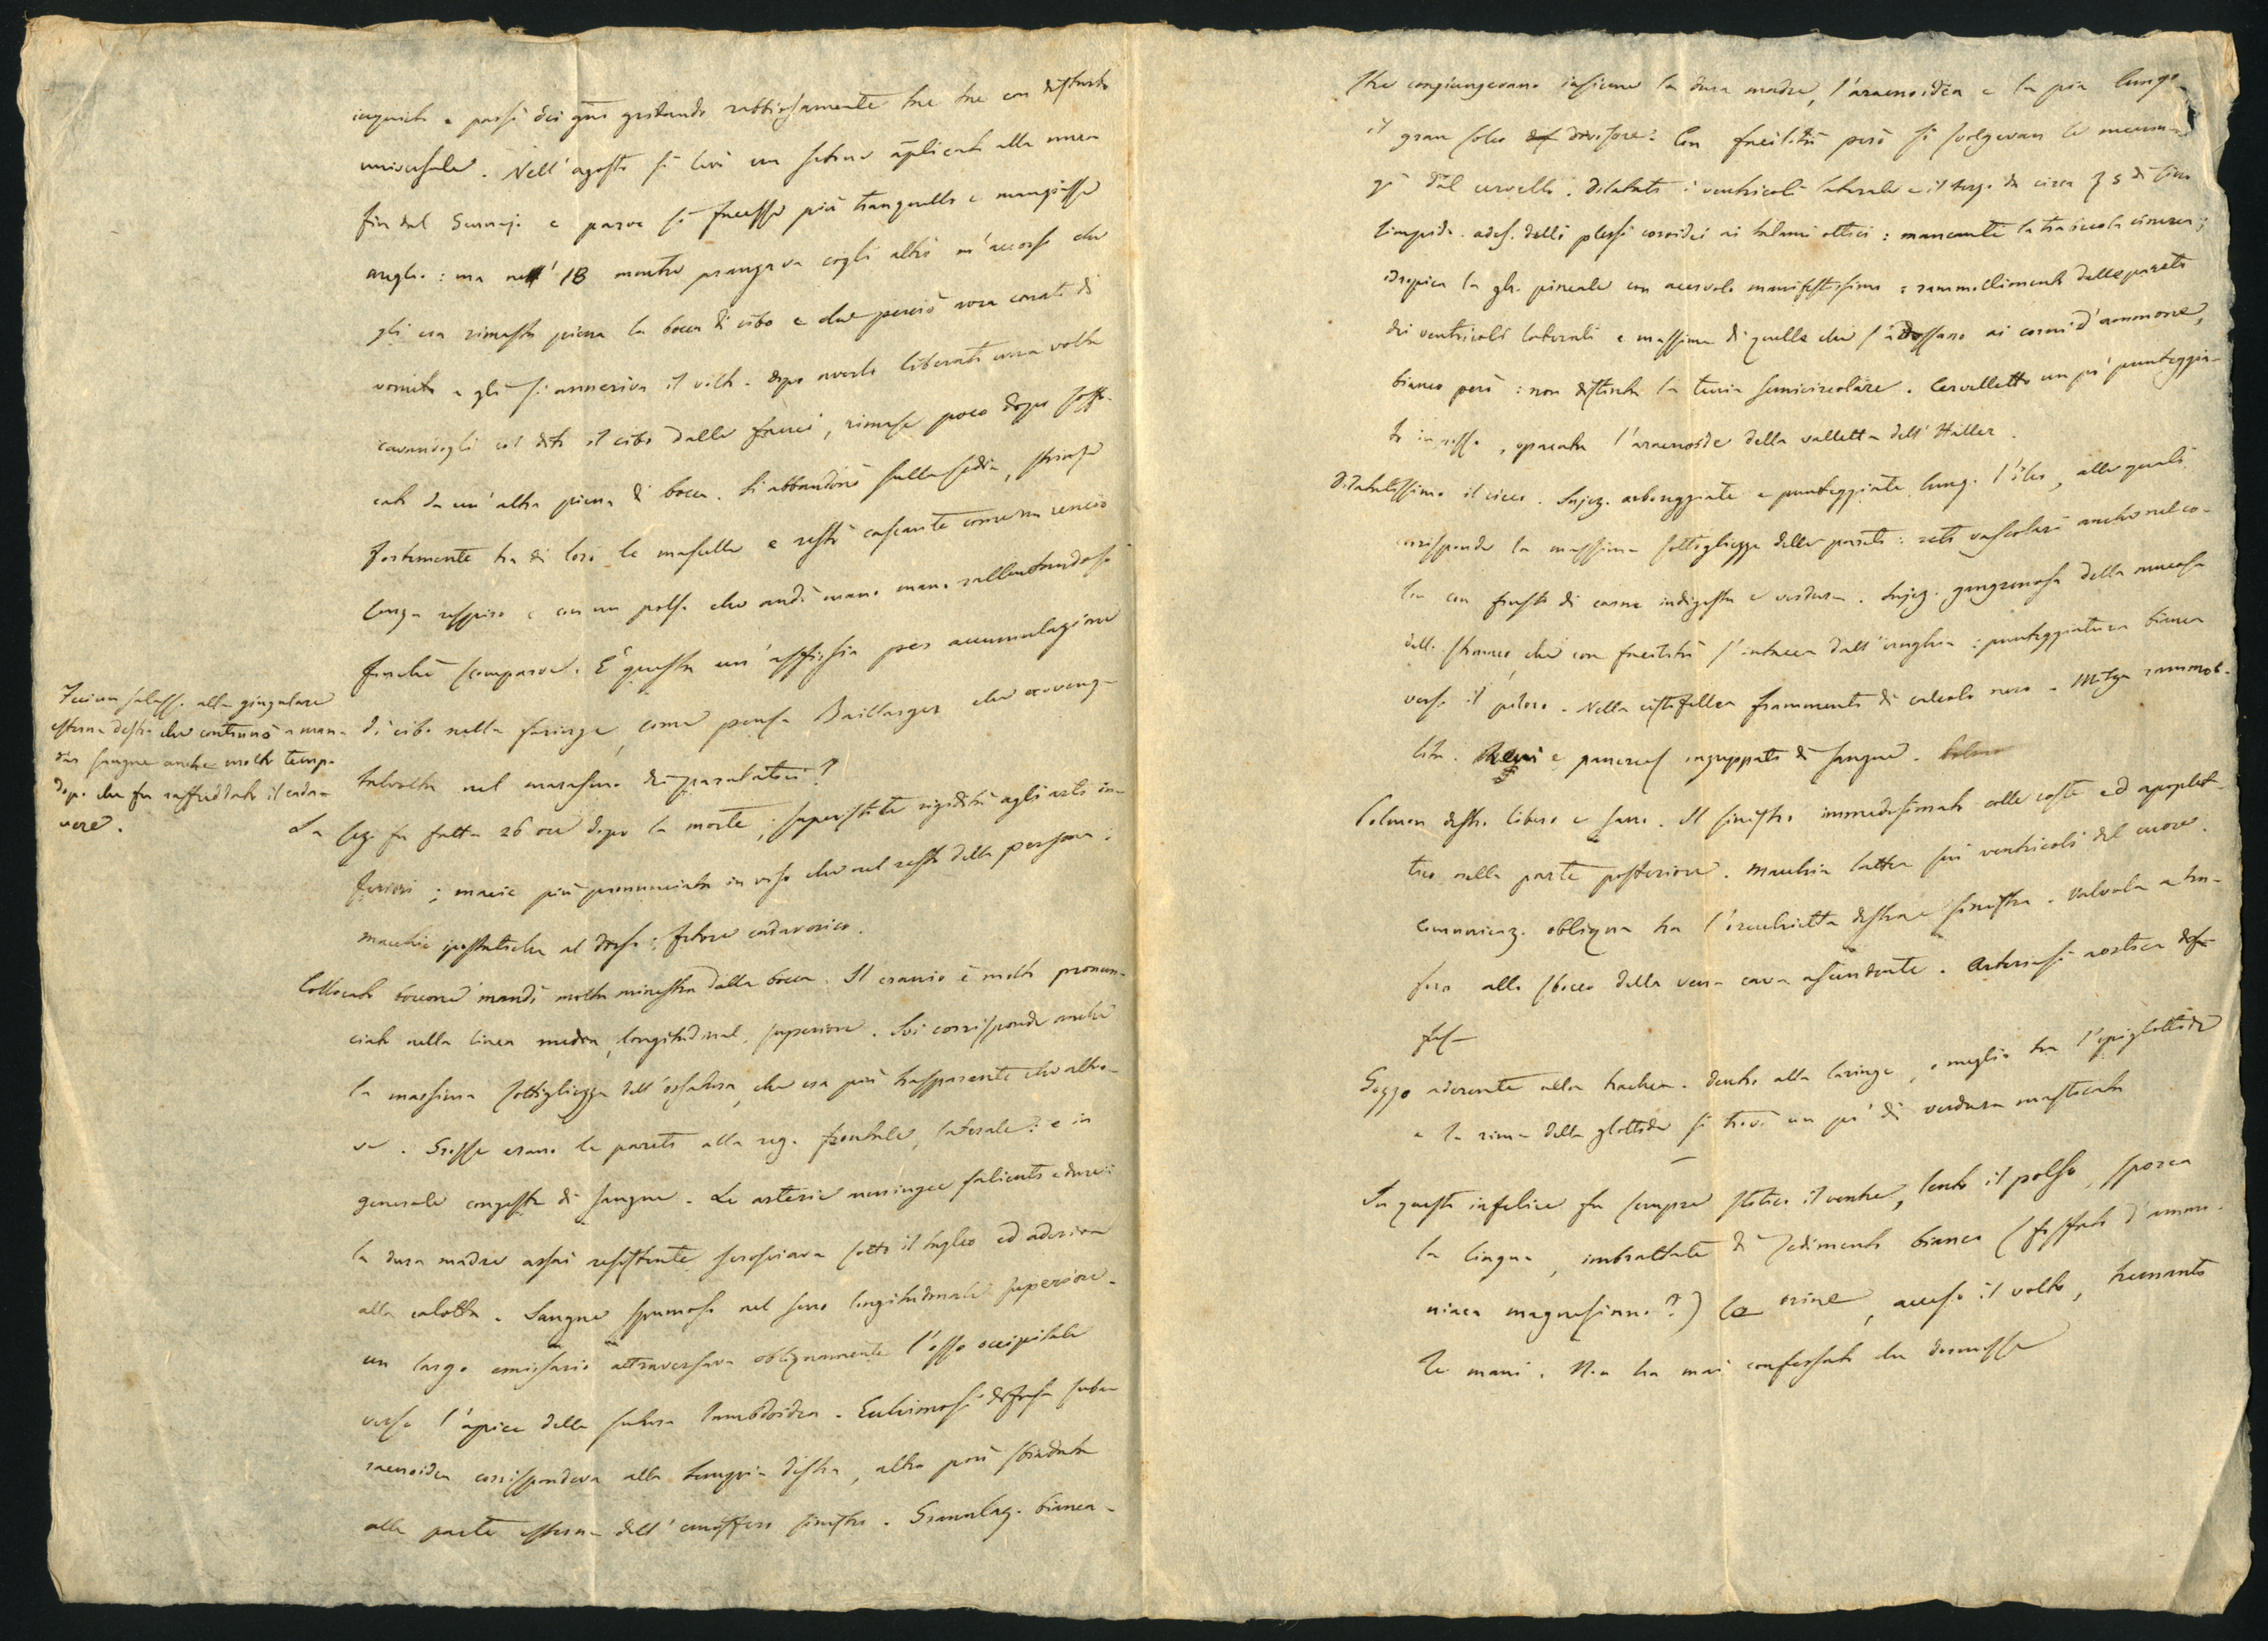 inquieto e passò dei gni gridando rabbiosamente tre tre con disturbo
universale. Nell'agosto si levò un setone applicato alla nuca
fin dal Gennajo e parve si facesse più tranquillo e mangiasse
meglio: ma nell' 18 mentre pranzava cogli altri m'accorsi che
gli era rimasta piena la bocca di cibo e che perciò avea conati di
vomito e gli si anneriva il volto. dopo averlo liberato una volta
cavandogli col dito il cibo dalle fauci, rimase poco dopo soffo-
cato da un'altra piena di bocca. Si abbandonò sulla sedia, strinse
fortemente tra di loro le mascelle e restò cascante come un cencio
senza respiro e con un polso che andò mano mano rallentandosi
finchè scomparve. E' questa un'asfissia per accumulazione
di cibo nella faringe, come pensa Baillarger che avvenga
talvolta nel marasmo dei paralitici?
Feci un salasso alla giugulare
esterna destra che continuò a man-
dar sangue anche molto tempo
dopo che fu raffreddato il cada-
vere.
La sez. fu fatta 26 ore dopo la morte; superstite rigidità agli arti in-
feriori; macie più pronunciata in viso che nel resto della persona:
macchie ipostatiche al dorso: fetore cadaverico.
Collocato boccone mandò molta minestra dalla bocca. Il cranio è molto pronun-
ciato nella linea media, longitudinal. superiore. Ivi corrisponde anche
la massima sottigliezza dell'ossatura, che era più trasparente che altro-
ve. Grosse erano le pareti alla reg. frontale, laterale: e in
generale congeste di sangue. Le arterie meningee salienti e dure:
la dura madre assai resistente scrosciava sotto il taglio ed aderiva
alla calotta. Sangue spumoso nel seno longitudinale superiore.
un largo emissario attraversava obliquamente l'osso occipitale
verso l'apice della sutura lambdoidea. Ecchimosi diffusa suba-
racnoidea corrispondeva alla tempia destra, altra più sbiadita
alla parte esterna dell'emisfero sinistro. Granulaz. bianca-
stre congiungevano insieme la dura madre, l'aracnoidea e la pia lungo
il gran solco divisore. Con facilità però si svolgevan le menin-
gi dal cervello. Dilatati i ventricoli laterali e il terzo da circa ℥ 5 di siero
limpido. ades. delli plessi coroidei ai talami ottici: mancante la trabecola cinerea;
idropica la gh. pineale con acervolo manifestissimo: rammollimento delle pareti
dei ventricoli laterali e massime di quelle che s'addossano ai corni d'ammone,
bianco però: non distinta la tenia semicircolare. Cervelletto un po' punteggia-
to in rosso, opacata l'aracnoide della valletta dell'Haller.
Dilatatissimo il cieco. Injez. arboreggiate e punteggiate lungo l'ileo, alle quali
corrisponde la massima sottigliezza delle pareti: reti vascolari anche nel co-
lon con frusti di carne indigesta e verdura. Injez. gangrenosa della mucosa
dello stomaco, che con facilità s'intacca dall'unghia: punteggiatura bianca
verso il piloro. Nella cistifellea frammenti di calcolo nero. Milza rammol-
lita. Reni e pancreas inzuppati di sangue.
Polmon destro libero e sano. Il sinistro immedesimato colle coste ed apoplet-
tico nella parte posteriore. Macchia lattea sui ventricoli del cuore.
Comunicaz. obliqua tra l'orecchietta destra e sinistra. Valvola a tra-
foro allo sbocco della vena cava ascendente. Arteriasi aortica dif-
fusa
Gozzo aderente alla trachea. dentro alla laringe, o meglio tra l'epiglottide
e la rima della glottide si trovò un po' di verdura masticata
In questo infelice fu sempre stitico il ventre, lento il polso, sporca
la lingua, imbrattate di sedimento bianco (fosfato d'ammo-
niaca magnesiaco?) le orine, acceso il volto, tremanti
le mani. Non ha mai confessato che dormisse